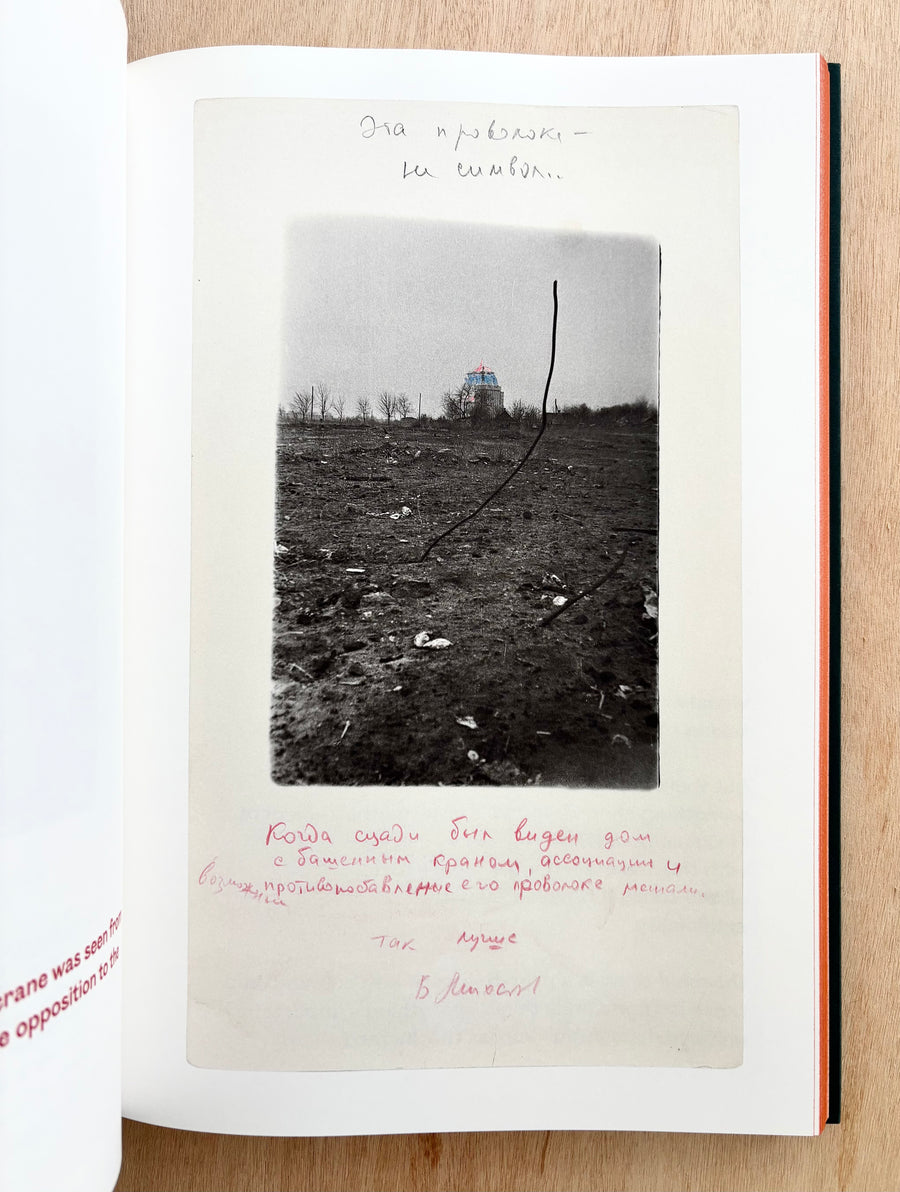 Эта проволока –
не символ..
Когда сзади был виден дом
с башенным краном, ассоциации и
возможные противопоставление его проволоке мешали.
Так лучше
Б Михайлов
crane was seen from
e opposition to the